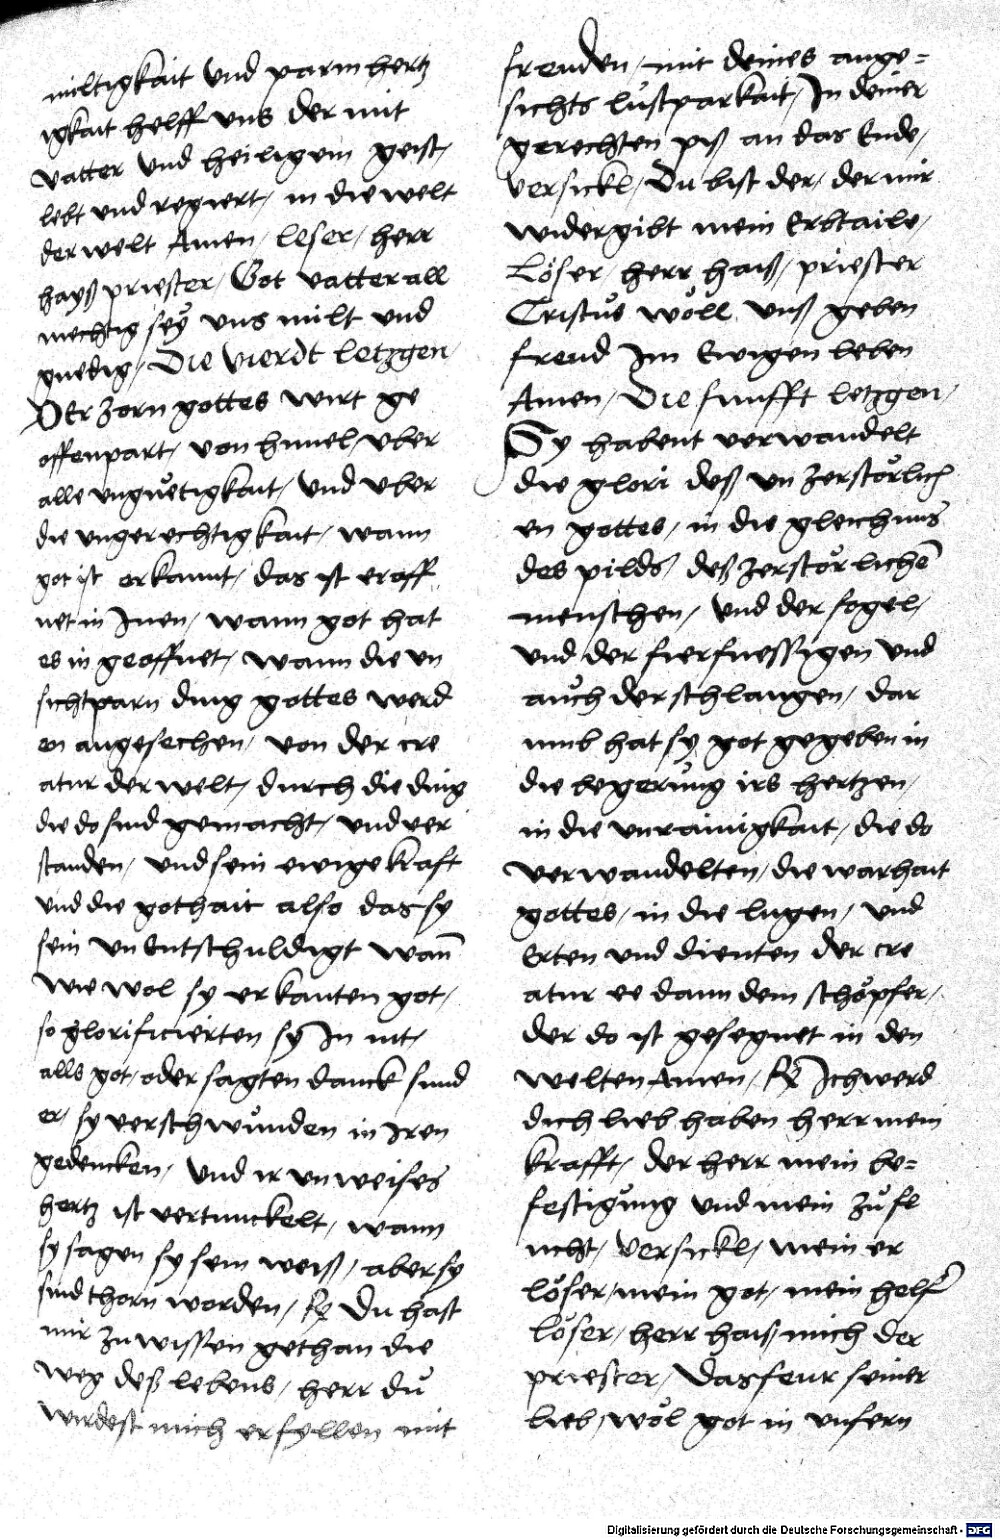 miltigkait Vnd parmhertz
igkait helff vns der mit
vatter Vnd heiligem geist/
lebt vnd regiert/ in die welt
der welt Amen/ leser/ herr
hayß priester/ Got vatter all
mechtig seÿ vns milt vnd
gnedig/ Die vierdt letzgen/
DEr zorn gottes wirt ge
offenpart/ von himel/ vber
alle vngüetigkait/ Vnd vber
die vngerechtigkait/ wann
got ist erkannt/ das ist eroff
net in Inen/ wann got hat
es in geoffnet/ wann die vn
sichtparn ding gottes werd
en angesechen/ von der cre
atur der welt/ durch die ding
die do sind gemacht/ vnd ver
standen/ vnd sein ewige kraft
vnd die gothait also das sy
sein vnEntschuldigt wañ
wie wol sy erkanten got/
so glorificierten sy In nit/
alls got/ oder sagten danck sund
er/ sy verschwůnden in Iren
gedencken/ Vnd ir vnweises
hertz ist vertunckelt/ wann
sy sagen sy sein weiß/ aber sy
sind thorn worden/ R Du hast
mir zu wissen gethan die
weg deß lebens/ herr dů
wirdest mich erfyllen mit
freuden/ mit deines ange=
sichts lustparkait/ In deiner
gerechten piß an das Ende/
Versickl/ Du bist der/ der mir
widergibt mein Erbtaile/
Löser/ herr haiß/ priester
Cristus wöll vnß geben
freud Im Ewigen leben
Amen/ Die funfft letzgen/
Sy habent verwandelt
die glori deß vnzerstörlich
en gottes/ in die gleichnus
des pilds/ deß zerstörlichẽ
menschen/ Vnd der fogel/
vnd der fierfuessigen vnd
auch der schlangen/ dar
umb hat sy got gegeben in
die begerůng irs hertzen/
in die vnrainigkait/ die do
verwandelten/ die warhait
gottes/ in die lugen/ vnd
Erten vnd dienten der cre
atur ee dann dem schöpfer/
der do ist gesegnet in den
welten Amen/ R Ich werd
dich lieb haben herr mein
krafft/ der herr mein be=
festigůng vnd mein zůfl
ucht/ Versickl/ mein er
löser/ mein got/ mein helfer
löser/ herr haiß mich der
priester/ Das feur seiner
lieb/ wöl got in vnsern
Digitalisierung gefördert durch die Deutsche Forschungsgemeinschaft - DFG